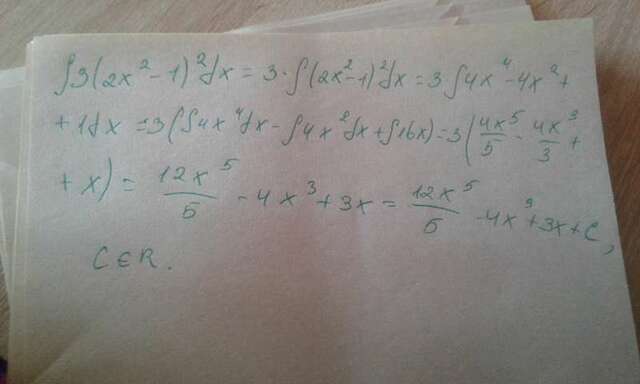 ∫3(2x² - 1)²dx = 3·∫(2x²-1)²dx = 3∫4x⁴-4x²+
+1dx = 3(∫4x⁴dx - ∫4x²dx + ∫1dx) = 3(4x⁵/5 - 4x³/3 +
+ x) = 12x⁵/5 - 4x³ + 3x = 12x⁵/5 - 4x³ + 3x + C,
C∈R.